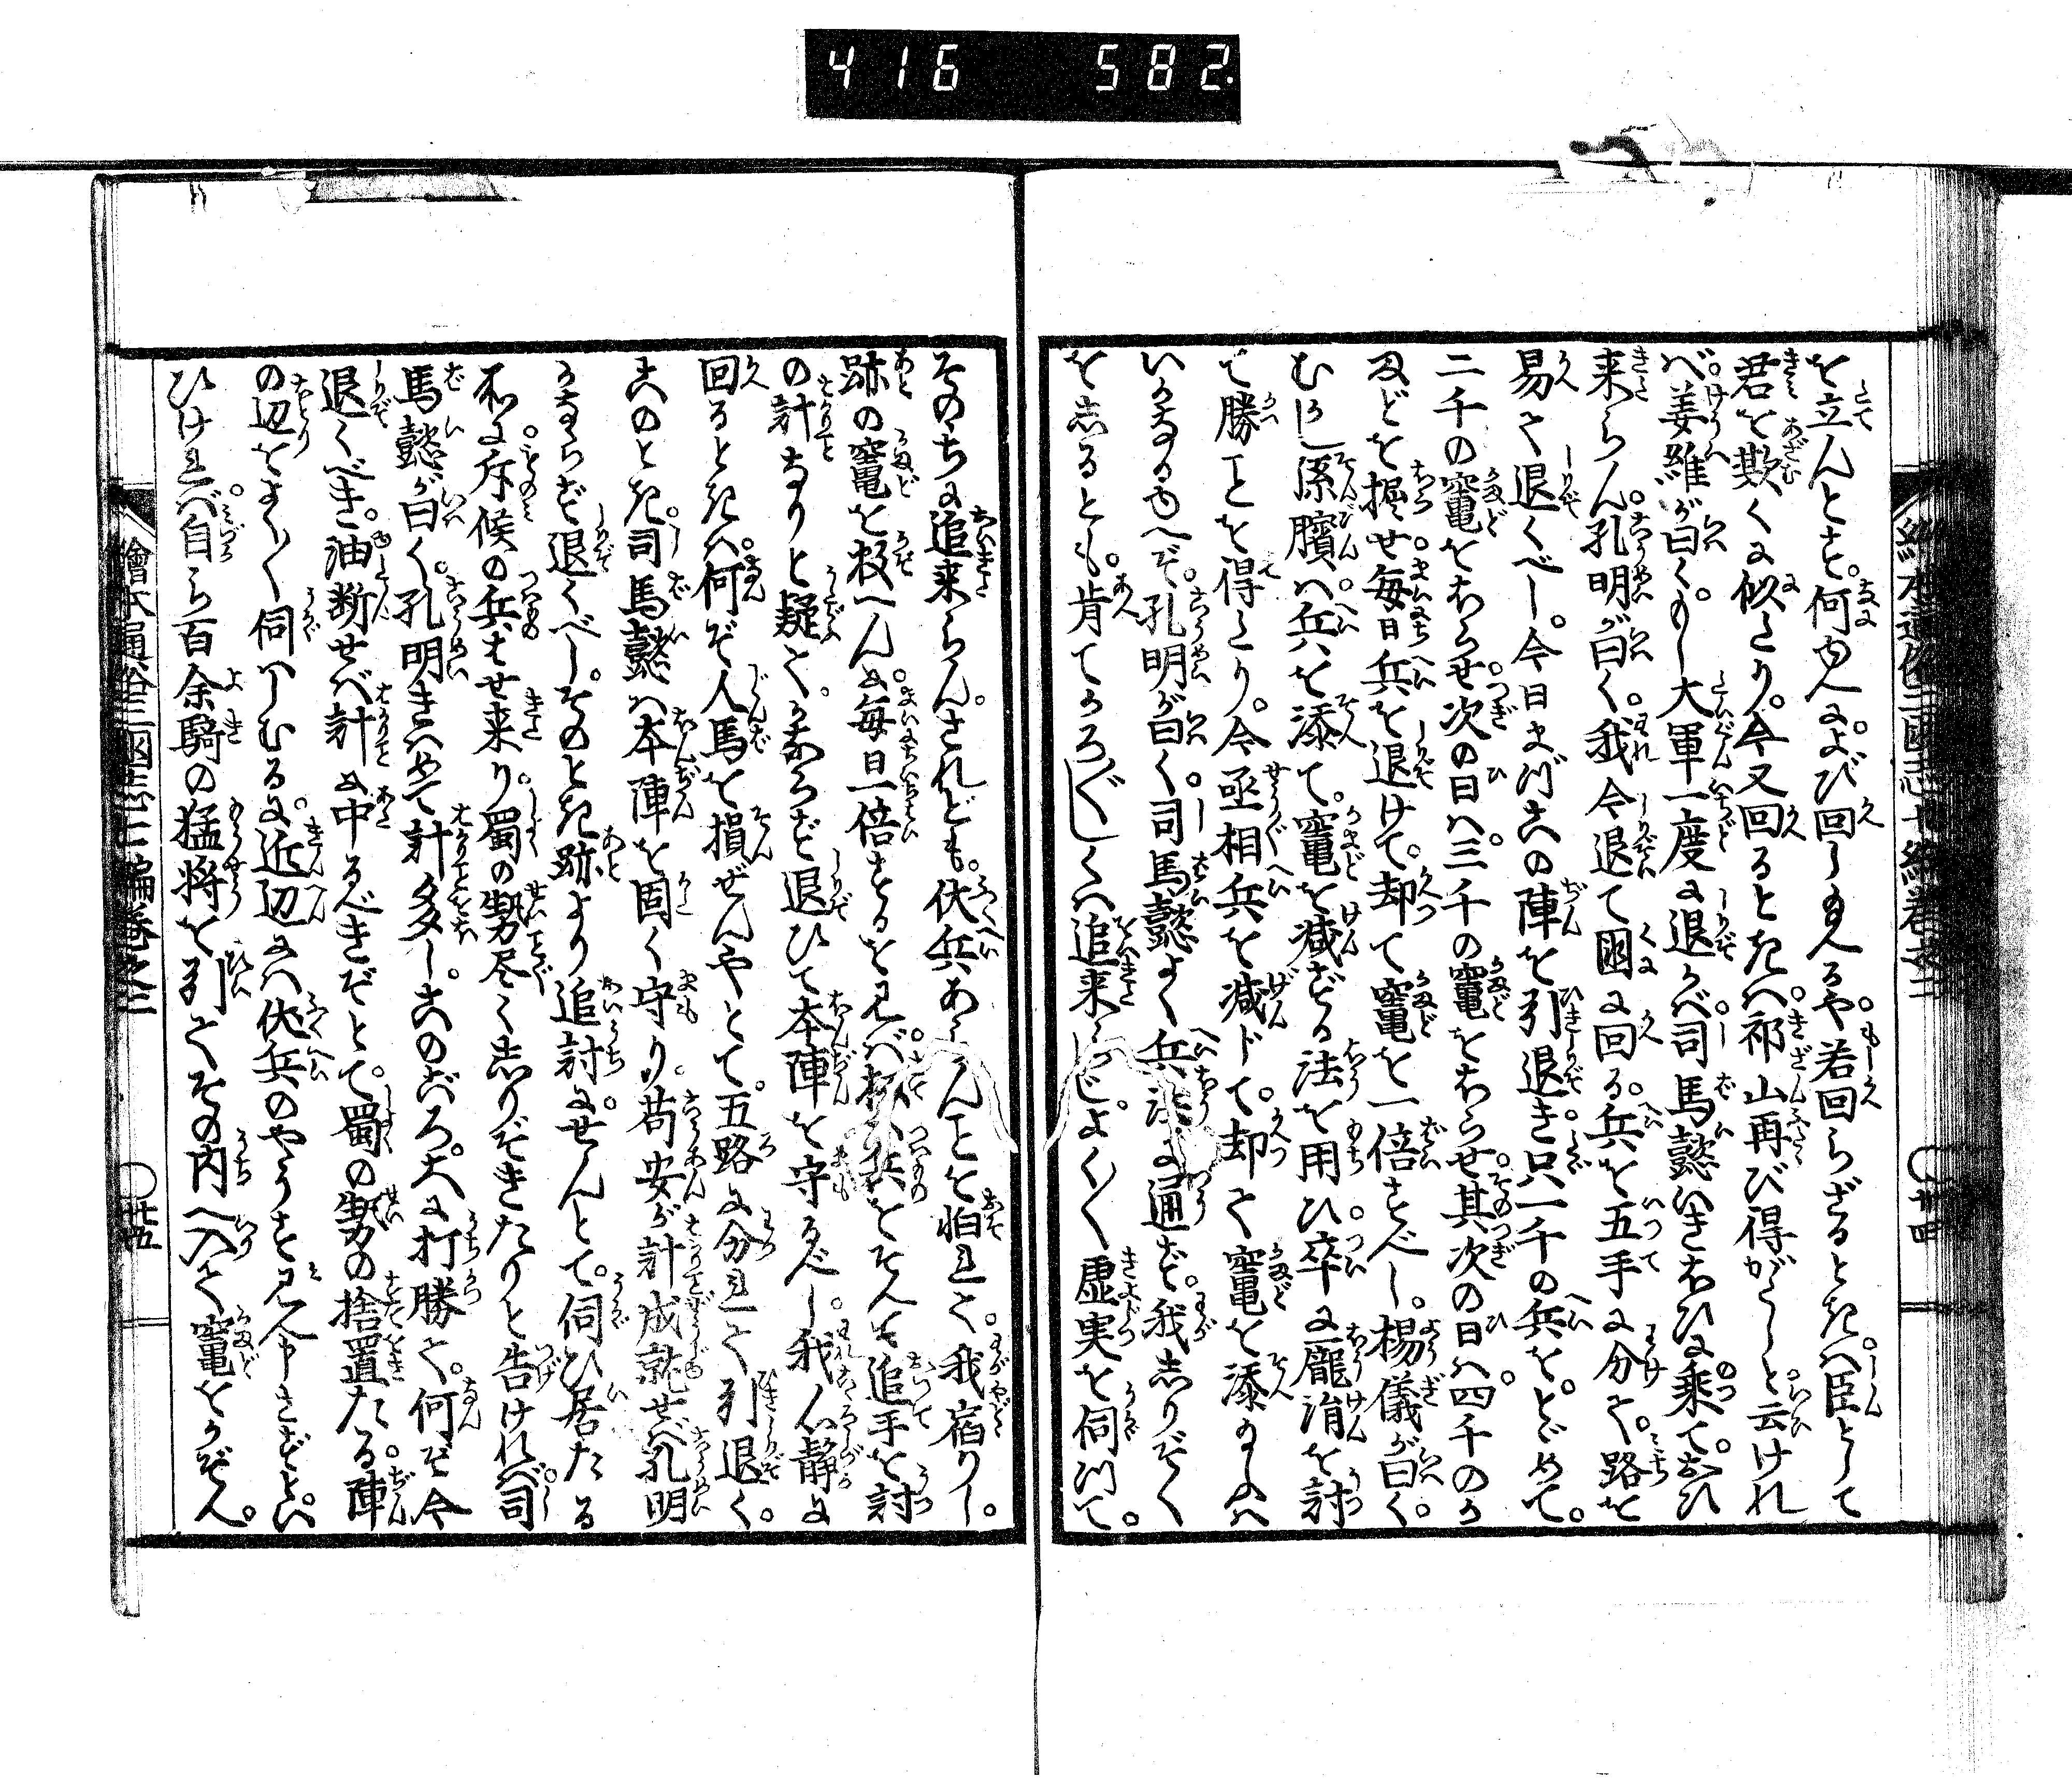 416 582
を立んとす。何ゆへによび回し玉へるや。若回らざるときハ。臣として
君を欺くに似たり。今又回るときハ。祁山再び得がたしと。云けれ
バ。姜維が曰く。もし大軍一度に退かバ。司馬懿いきおひに乗て。おひ
来らん。孔明が曰く。我今退て国に回る。兵を五手に分て。路を
易て退くべし。今日まづ此の陣を引退き。只一千の兵を。とゞめて。
二千の竈をほらせ。次の日ハ。三千の竈をほらせ。其次の日ハ。四千のか
まどを掘せ。毎日兵を退けて。却て竈を一倍すべし。楊儀が曰く。
むかし孫臏ハ。兵を添て。竈を減ずる法を用ひ。卒に龐涓を討
て勝ことを得たり。今丞相兵を減ドて。却て竈を添玉ふハ
いかなるゆへぞ。孔明が曰く。司馬懿よく兵法に通ず。我しりぞく
を志るとも。肯てかろ〴〵しくハ追来らじ。よく〳〵虚実を伺ひて。
そのちに追来らん。されども。伏兵あらんことを怕れて。我宿りし。
跡の竈を数へん。に毎日一倍するを見バ。さて兵をそへて追手を討
の計なりと疑て。かならず退ひて本陣を守るべし。我心静に
回るときハ。何ぞ人馬を損ぜんやとて。五路に分れて引退く。
此のとき。司馬懿ハ本陣を固く守り。苟安が計成就せバ。孔明
かならず退くべし。そのとき跡より追討に。せんとて。伺ひ居たる
所に。斥候の兵はせ来り。蜀の勢尽く志りぞきたりと告けれバ。司
馬懿が曰く。孔明きハめて計多し。此のごろ。大に打勝て。何ぞ今
退くべき。油断せバ計に中るべきぞとて。蜀の勢の捨置たる。陣
の辺をよく〳〵伺ハしむるに。近辺にハ伏兵のやうす見へ申さずと。い
ひけれバ。自ら百余騎の猛将を引てその内へ入て竈をかぞへ。
繪本通俗三國志七編巻之三
〇廿四
繪本通俗三國志七編巻之三
〇廿五